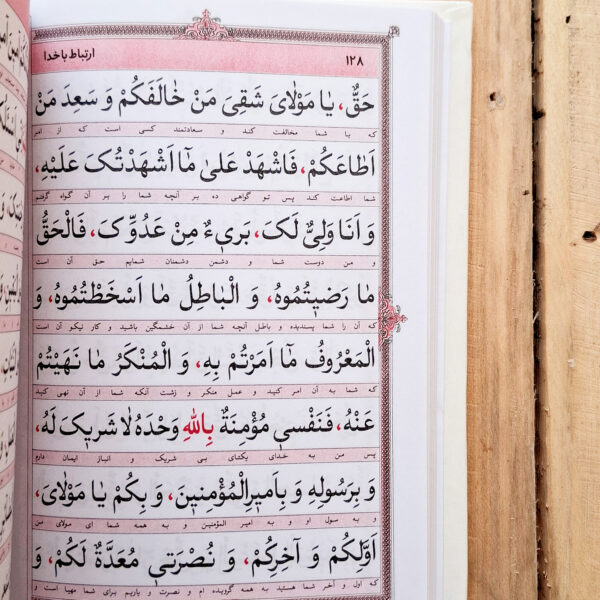 ۱۲۸ ارتباط با خدا
حَقٌّ، یٰا مَوْلٰایَ شَقِیَ مَنْ خٰالَفَکُمْ وَ سَعِدَ مَنْ
که با شما مخالفت کند و سعادتمند کسی است که از امر
اَطٰاعَکُمْ، فَاشْهَدْ عَلیٰ مٰٓا اَشْهَدْتُکَ عَلَیْهِ،
شما اطاعت کند پس تو گواهی ده بر آنچه شما را بر آن گواه گرفتم
وَ اَنَا وَلِیٌّ لَکَ، بَریٓءٌ مِنْ عَدُوِّکَ، فَالْحَقُّ
و من دوست شما و دشمن دشمنان شمایم حق آن است
مٰا رَضیٖتُمُوهُ، وَ الْبٰاطِلُ مٰٓا اَسْخَطْتُمُوهُ، وَ
که آن را شما پسندیده و باطل آنچه شما از آن خشمگین باشید و کار نیکو آن است
الْمَعْرُوفُ مٰٓا اَمَرْتُمْ بِهِ، وَ الْمُنْکَرُ مٰا نَهَیْتُمْ
که شما به آن امر کنید و عمل منکر و زشت آنکه شما از آن نهی کنید
عَنْهُ، فَنَفْسیٖ مُؤْمِنَةٌ بِاللّٰهِ وَحْدَهُ لٰا شَریٖکَ لَهُ،
پس من به خدای یکتای بی شریک و انباز ایمان دارم
وَ بِرَسُولِهِ وَ بِاَمیٖرِالْمُؤْمِنیٖنَ، وَ بِکُمْ یٰا مَوْلٰایَ،
و به رسول او و به امیر المؤمنین و به همه شما ای مولای من
اَوَّلِکُمْ وَ آخِرِکُمْ، وَ نُصْرَتیٖ مُعَدَّةٌ لَکُمْ، وَ
که اول و آخر شما هستید به همه گرویده ام و نصرت و یاریم برای شما مهیا است و